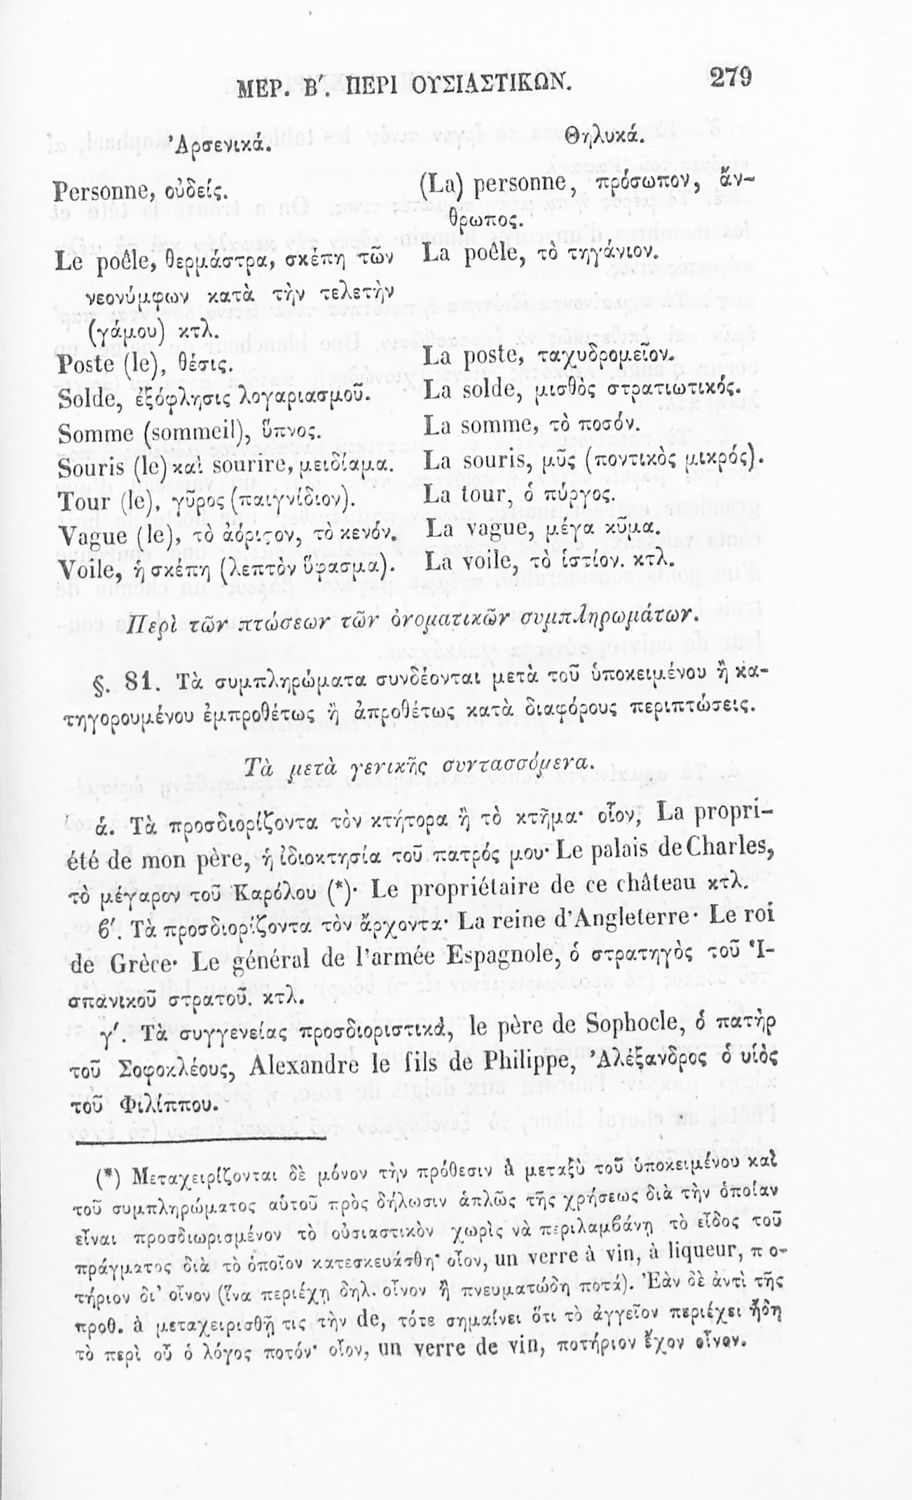 ΜΕΡ. Β΄. ΠΕΡΙ ΟΥΣΙΑΣΤΙΚΩΝ. 279
Ἀρσενικά. Θηλυκά.
Personne, οὐδείς. (La) personne, πρόσωπον, ἄν-
θρωπος.
Le poêle, θερμάστρα, σκέπη τῶν La poêle, τὸ τηγάνιον.
νεονύμφων κατὰ τὴν τελετὴν
(γάμου) κτλ.
Poste (le), θέσις. La poste, ταχυδρομεῖον.
Solde, ἐξόφλησις λογαριασμοῦ. La solde, μισθὸς στρατιωτικός.
Somme (sommeil), ὕπνος. La somme, τὸ ποσόν.
Souris (le) καὶ sourire, μειδίαμα. La souris, μῦς (ποντικὸς μικρός).
Tour (le), γῦρος (παιγνίδιον). La tour, ὁ πύργος.
Vague (le), τὸ ἀόριστον, τὸ κενόν. La vague, μέγα κῦμα.
Voile, ἡ σκέπη (λεπτὸν ὕφασμα). La voile, τὸ ἱστίον. κτλ.
Περὶ τῶν πτώσεων τῶν ὀνοματικῶν συμπληρωμάτων.
§. 81. Τὰ συμπληρώματα συνδέονται μετὰ τοῦ ὑποκειμένου ἢ κα-
τηγορουμένου ἐμπροθέτως ἢ ἀπροθέτως κατὰ διαφόρους περιπτώσεις.
Τὰ μετὰ γενικῆς συντασσόμενα.
ά. Τὰ προσδιορίζοντα τὸν κτήτορα ἢ τὸ κτῆμα· οἷον, La propri-
été de mon père, ἡ ἰδιοκτησία τοῦ πατρός μου· Le palais de Charles,
τὸ μέγαρον τοῦ Καρόλου (*)· Le propriétaire de ce château κτλ.
β΄. Τὰ προσδιορίζοντα τὸν ἄρχοντα· La reine d'Angleterre· Le roi
de Grèce· Le général de l'armée Espagnole, ὁ στρατηγὸς τοῦ Ἱ-
σπανικοῦ στρατοῦ. κτλ.
γ΄. Τὰ συγγενείας προσδιοριστικά, le père de Sophocle, ὁ πατὴρ
τοῦ Σοφοκλέους, Alexandre le fils de Philippe, Ἀλέξανδρος ὁ υἱὸς
τοῦ Φιλίππου.
(*) Μεταχειρίζονται δὲ μόνον τὴν πρόθεσιν à μεταξὺ τοῦ ὑποκειμένου καὶ
τοῦ συμπληρώματος αὑτοῦ πρὸς δήλωσιν ἁπλῶς τῆς χρήσεως διὰ τὴν ὁποίαν
εἶναι προσδιωρισμένον τὸ οὐσιαστικὸν χωρὶς νὰ περιλαμβάνῃ τὸ εἶδος τοῦ
πράγματος διὰ τὸ ὁποῖον κατεσκευάσθη· οἷον, un verre à vin, à liqueur, πο-
τήριον δι' οἶνον (ἵνα περιέχῃ δηλ. οἶνον ἢ πνευματώδη ποτά). Ἐὰν δὲ ἀντὶ τῆς
προθ. à μεταχειρισθῇ τις τὴν de, τότε σημαίνει ὅτι τὸ ἀγγεῖον περιέχει ἤδη
τὸ περὶ οὗ ὁ λόγος ποτόν· οἷον, un verre de vin, ποτήριον ἔχον οἶνον.